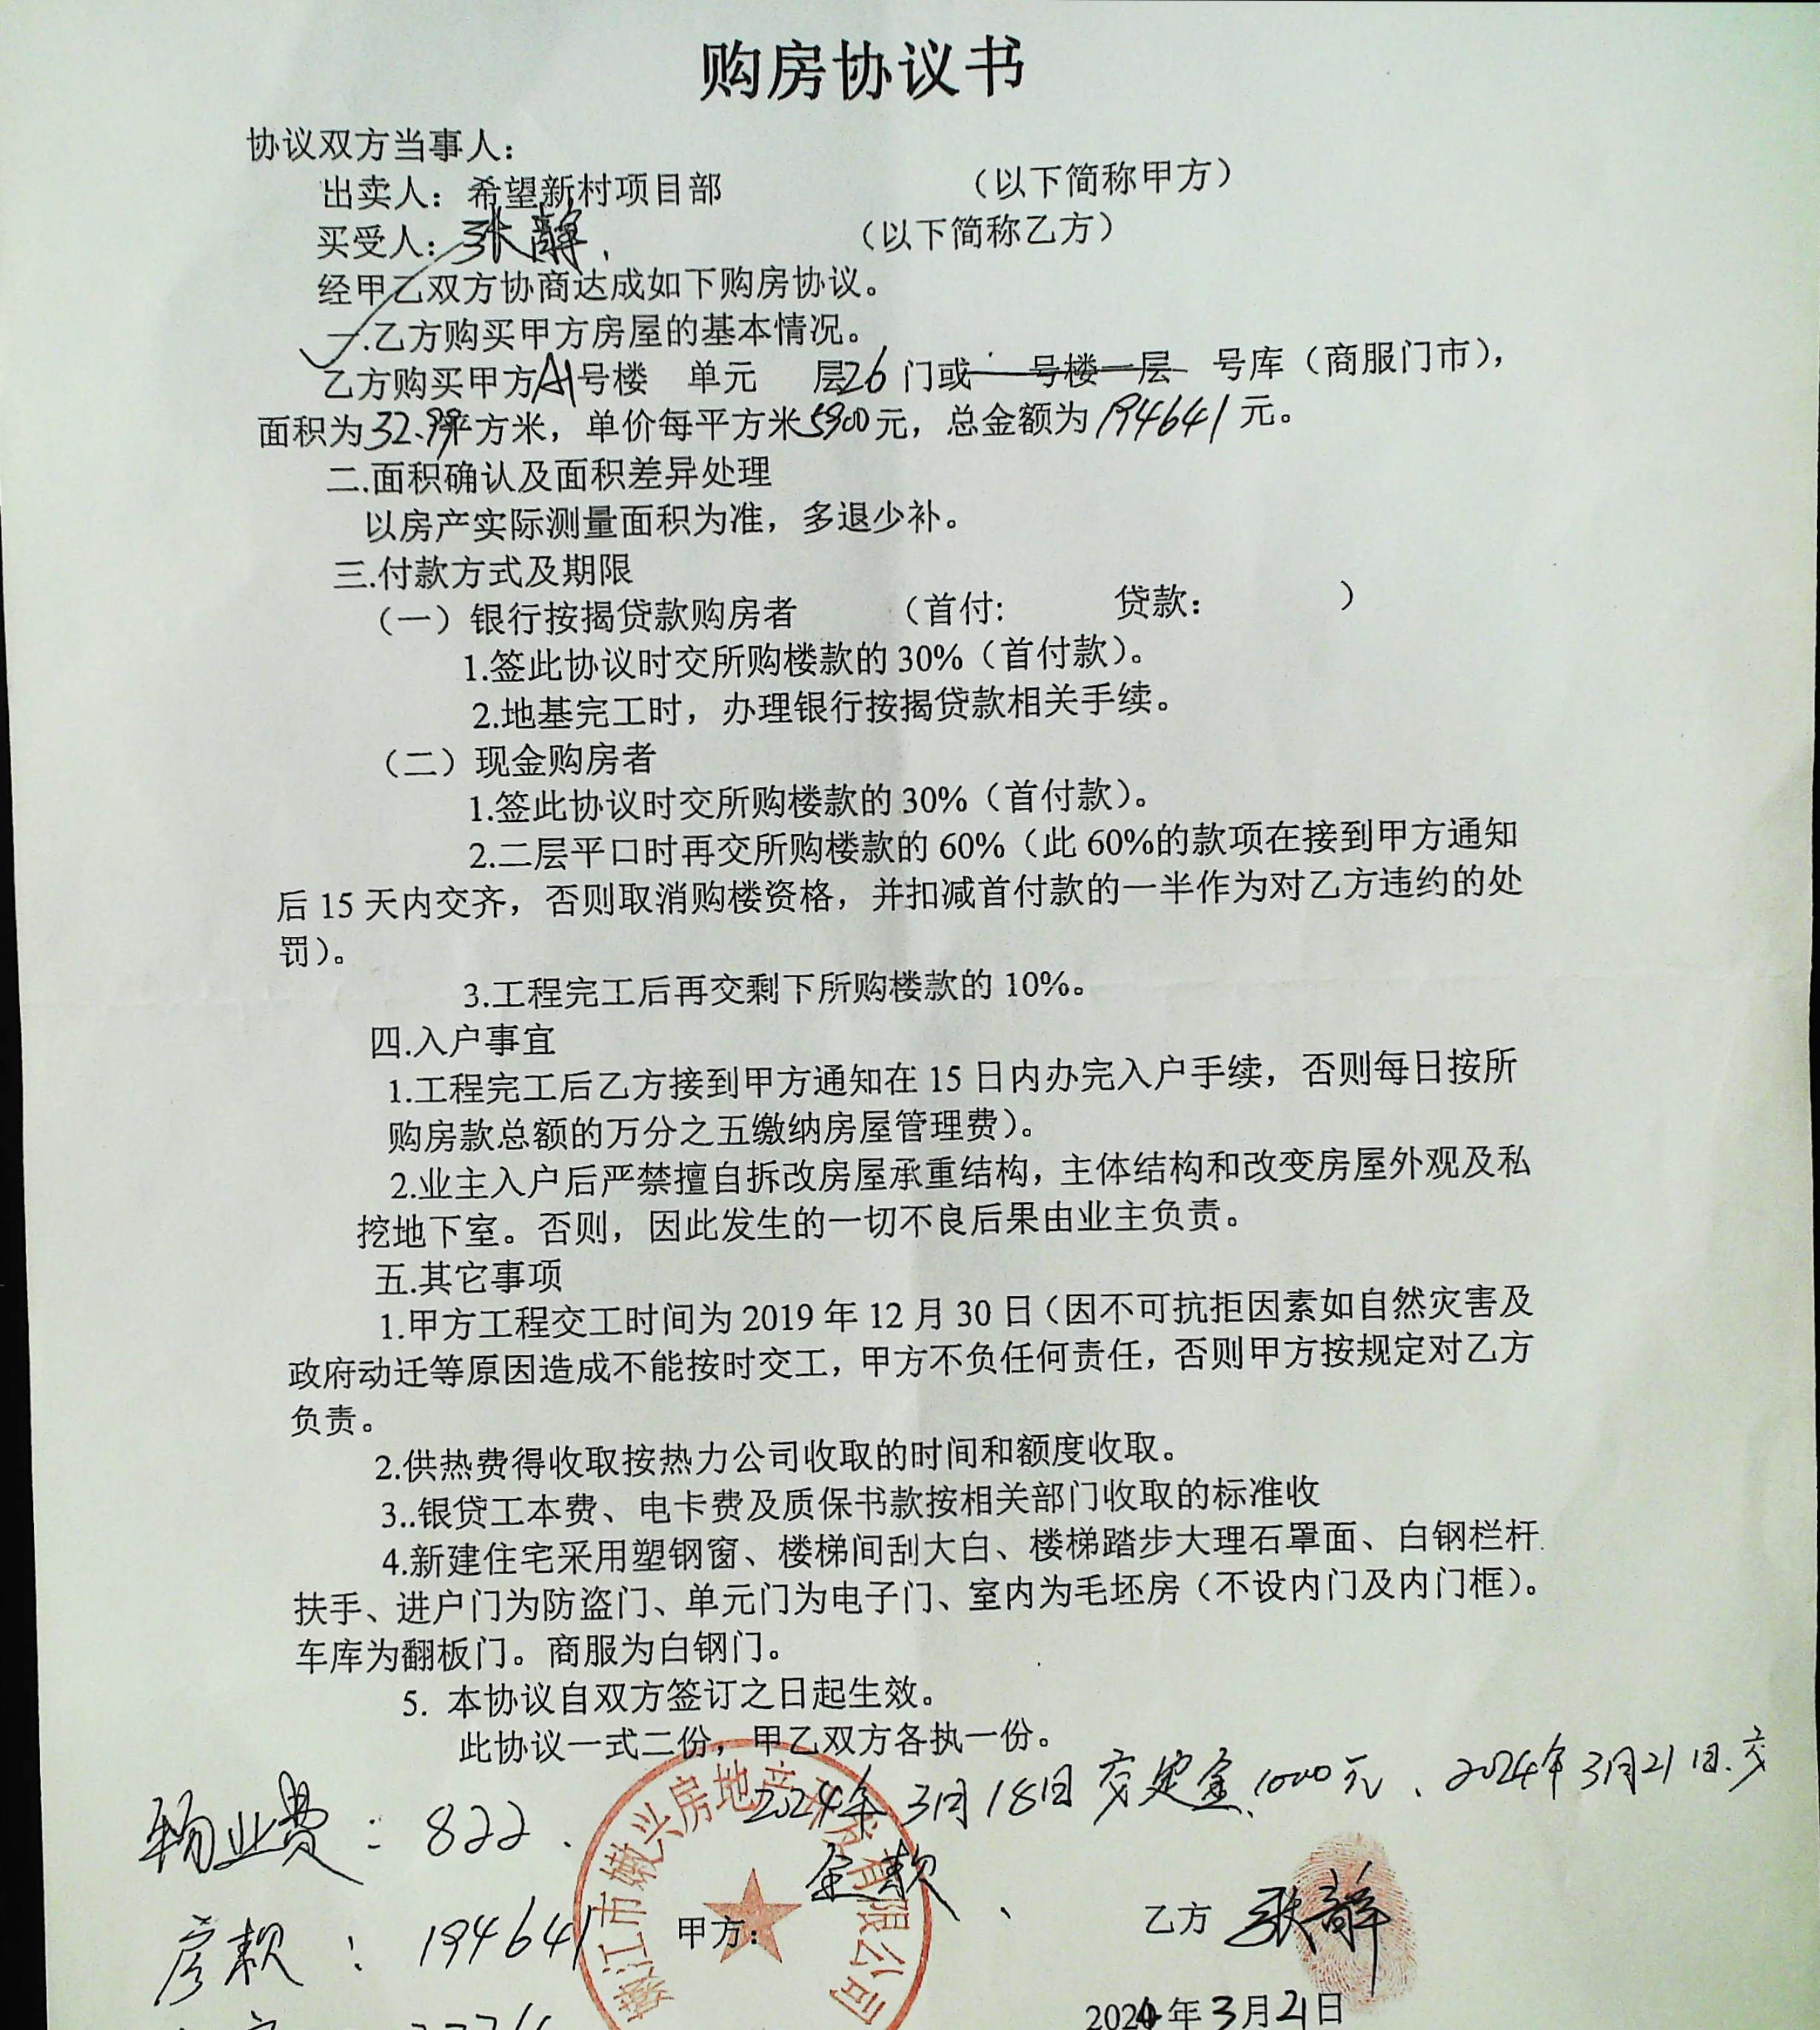 购房协议书
协议双方当事人：
出卖人：希望新村项目部 （以下简称甲方）
买受人：张静. （以下简称乙方）
经甲乙双方协商达成如下购房协议。
一.乙方购买甲方房屋的基本情况。
乙方购买甲方A1号楼 单元 层26门或 号楼一层 号库（商服门市），
面积为32.99平方米，单价每平方米5900元，总金额为194641元。
二.面积确认及面积差异处理
以房产实际测量面积为准，多退少补。
三.付款方式及期限
（一）银行按揭贷款购房者 （首付: 贷款： ）
1.签此协议时交所购楼款的30%（首付款）。
2.地基完工时，办理银行按揭贷款相关手续。
（二）现金购房者
1.签此协议时交所购楼款的30%（首付款）。
2.二层平口时再交所购楼款的60%（此60%的款项在接到甲方通知
后15天内交齐，否则取消购楼资格，并扣减首付款的一半作为对乙方违约的处
罚）。
3.工程完工后再交剩下所购楼款的10%。
四.入户事宜
1.工程完工后乙方接到甲方通知在15日内办完入户手续，否则每日按所
购房款总额的万分之五缴纳房屋管理费）。
2.业主入户后严禁擅自拆改房屋承重结构，主体结构和改变房屋外观及私
挖地下室。否则，因此发生的一切不良后果由业主负责。
五.其它事项
1.甲方工程交工时间为2019年12月30日（因不可抗拒因素如自然灾害及
政府动迁等原因造成不能按时交工，甲方不负任何责任，否则甲方按规定对乙方
负责。
2.供热费得收取按热力公司收取的时间和额度收取。
3..银贷工本费、电卡费及质保书款按相关部门收取的标准收
4.新建住宅采用塑钢窗、楼梯间刮大白、楼梯踏步大理石罩面、白钢栏杆
扶手、进户门为防盗门、单元门为电子门、室内为毛坯房（不设内门及内门框）。
车库为翻板门。商服为白钢门。
5. 本协议自双方签订之日起生效。
此协议一式二份，甲乙双方各执一份。
2024年3月18日交定金1000元、2024年3月21日.交
全款、
物业费：822.
房款：194641
嫩江市嫩兴房地产开发有限公司
甲方：
乙方 张静
2024年3月21日